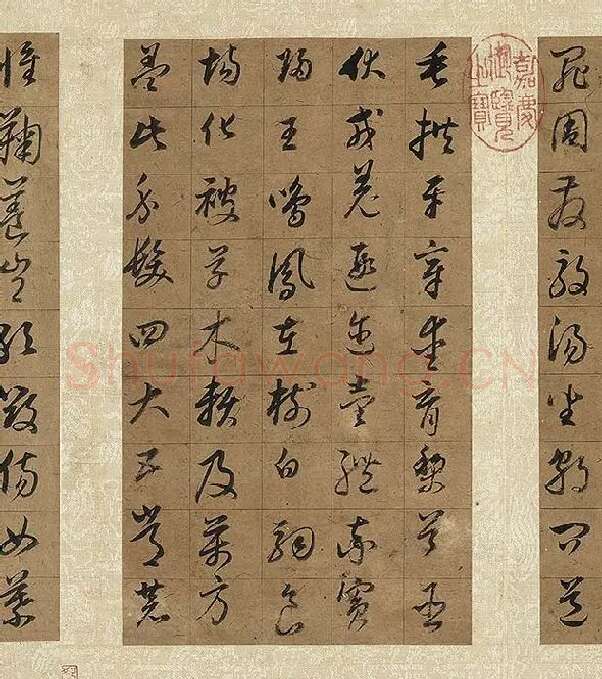 罪周發殷湯坐朝問道
嘉慶御覽之寶
垂拱平章愛育黎首臣
伏戎羌遐邇壹體率賓
歸王鳴鳳在樹白駒食
場化被草木賴及萬方
蓋此身髮四大五常恭
惟鞠養豈敢毀傷女慕
Shufawang.CN